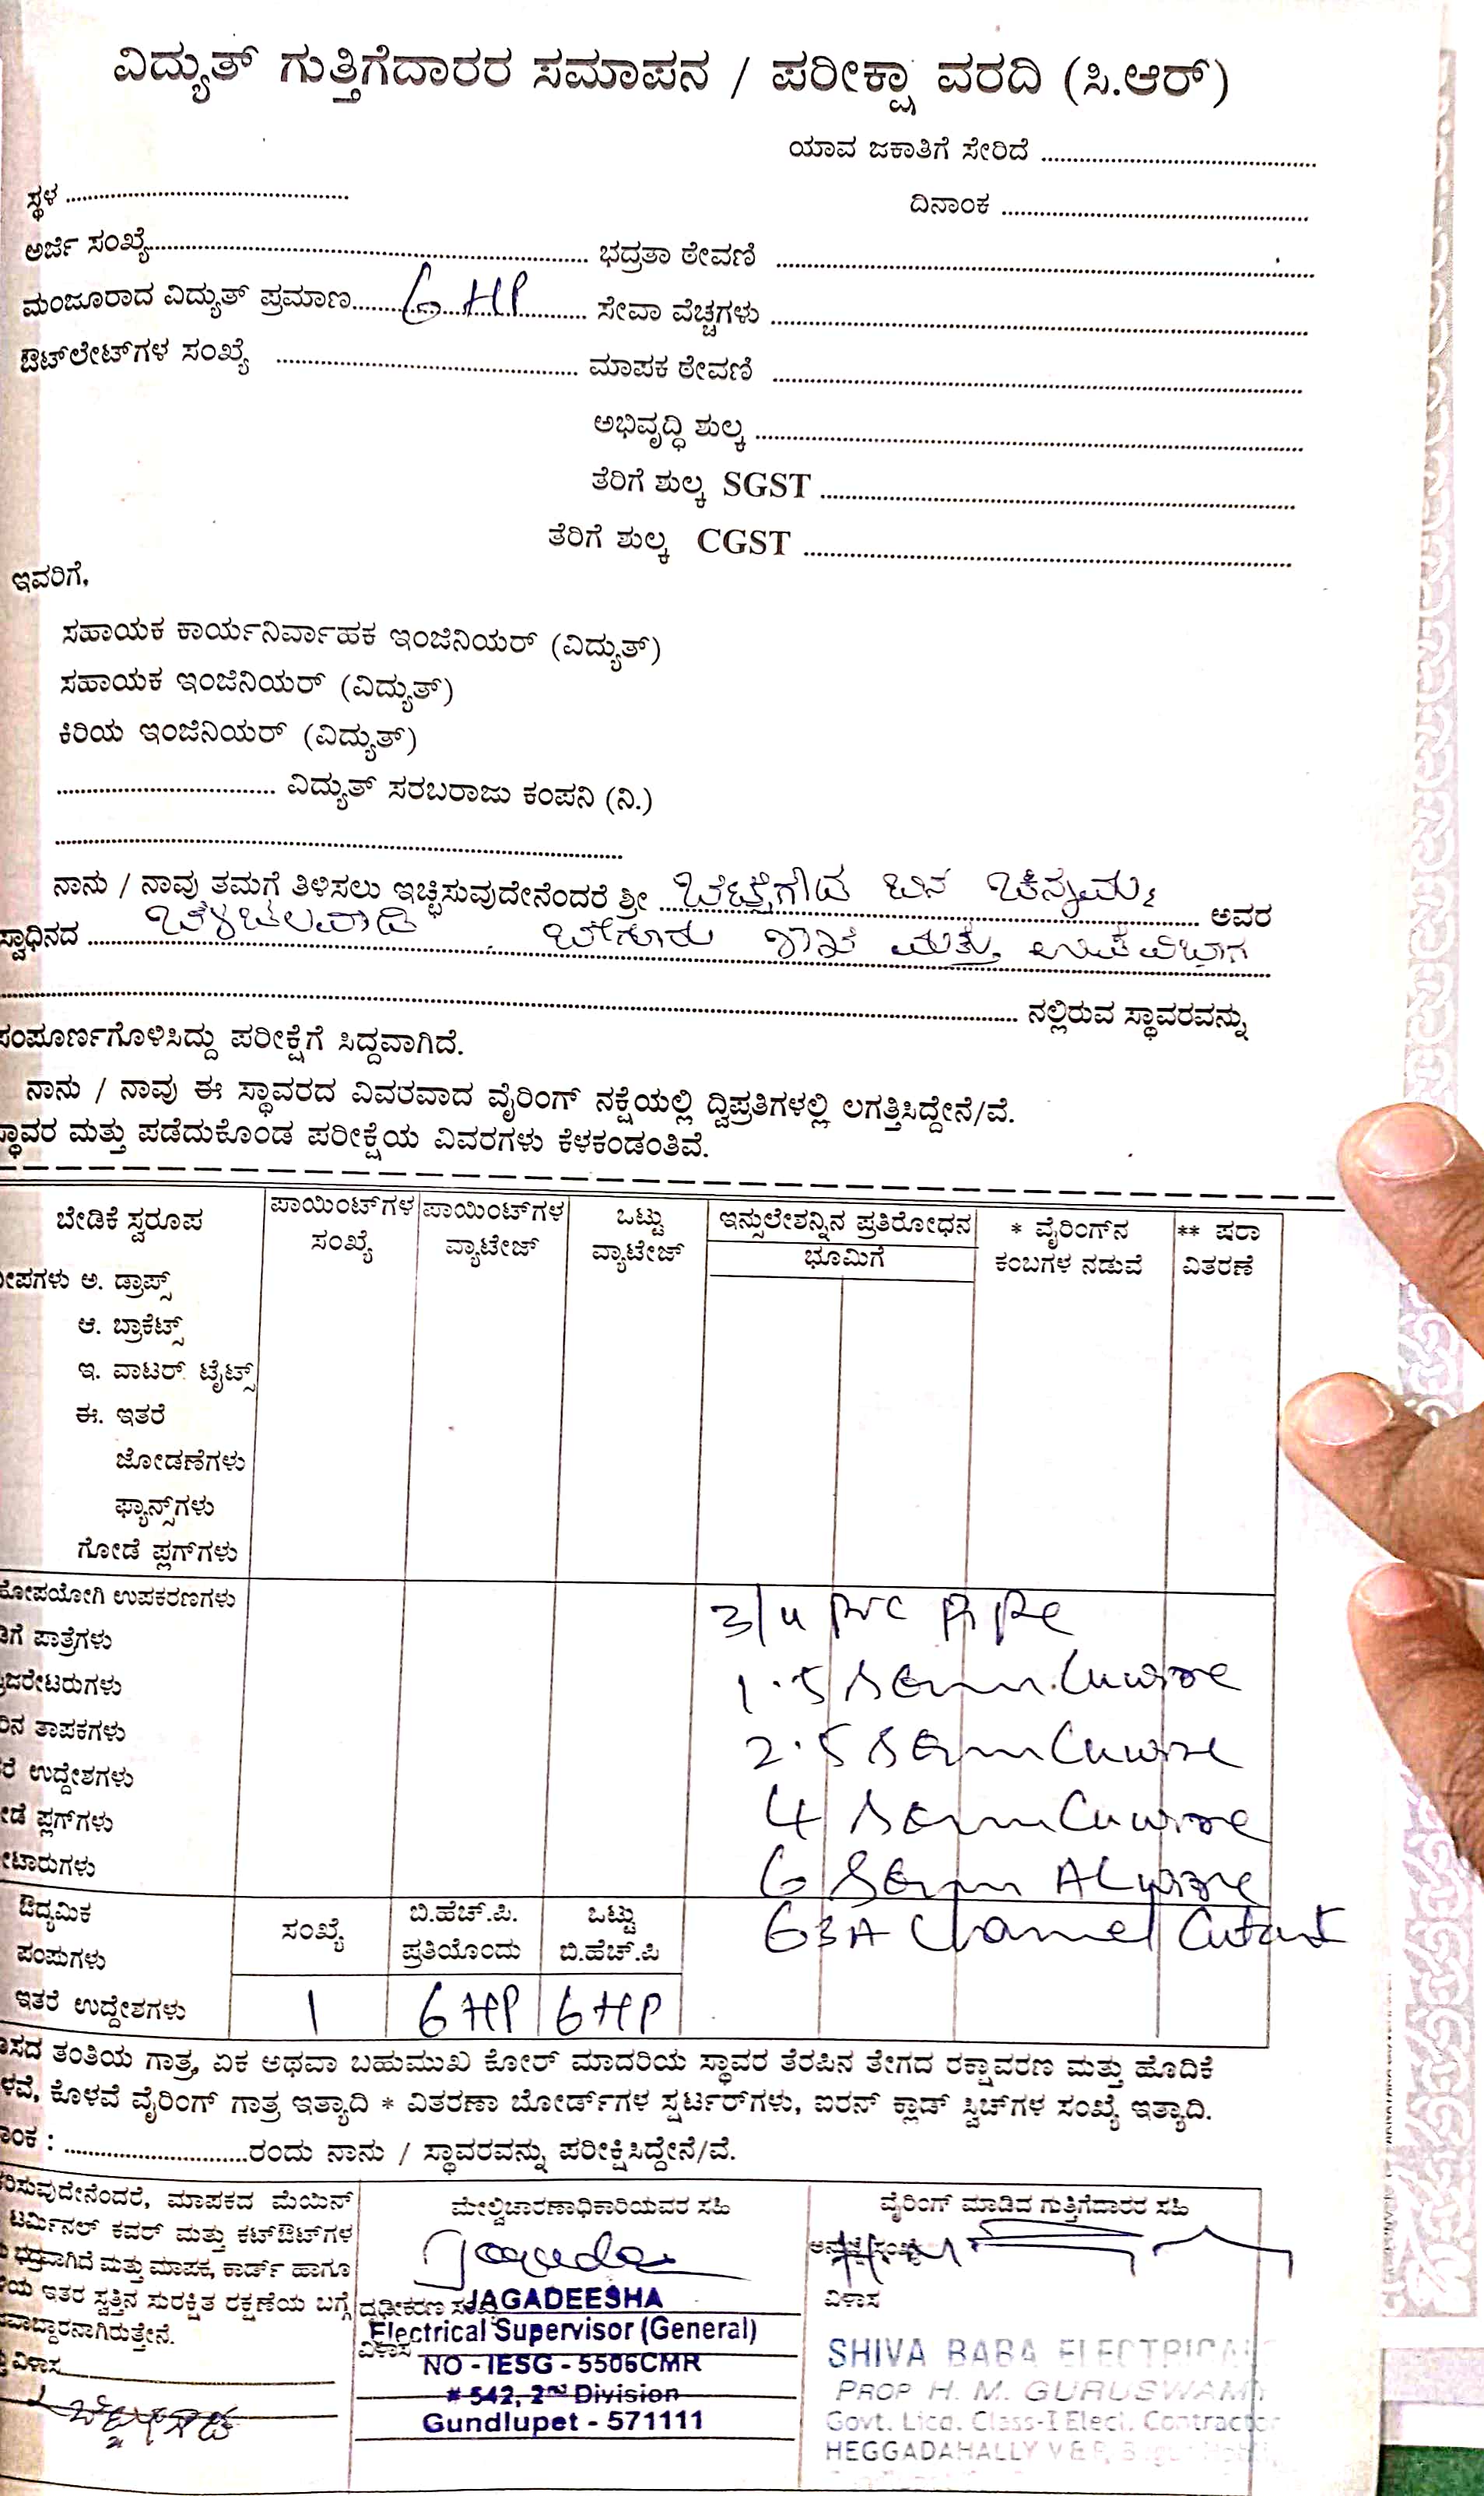 ವಿದ್ಯುತ್ ಗುತ್ತಿಗೆದಾರರ ಸಮಾಪನ / ಪರೀಕ್ಷಾ ವರದಿ (ಸಿ.ಆರ್)
ಯಾವ ಜಕಾತಿಗೆ ಸೇರಿದೆ
ಸ್ಥಳ
ದಿನಾಂಕ
ಅರ್ಜಿ ಸಂಖ್ಯೆ ಭದ್ರತಾ ಠೇವಣಿ
ಮಂಜೂರಾದ ವಿದ್ಯುತ್ ಪ್ರಮಾಣ 6 HP ಸೇವಾ ವೆಚ್ಚಗಳು
ಔಟ್‌ಲೇಟ್‌ಗಳ ಸಂಖ್ಯೆ ಮಾಪಕ ಠೇವಣಿ
ಅಭಿವೃದ್ಧಿ ಶುಲ್ಕ
ತೆರಿಗೆ ಶುಲ್ಕ SGST
ತೆರಿಗೆ ಶುಲ್ಕ CGST
ಇವರಿಗೆ,
ಸಹಾಯಕ ಕಾರ್ಯನಿರ್ವಾಹಕ ಇಂಜಿನಿಯರ್ (ವಿದ್ಯುತ್)
ಸಹಾಯಕ ಇಂಜಿನಿಯರ್ (ವಿದ್ಯುತ್)
ಕಿರಿಯ ಇಂಜಿನಿಯರ್ (ವಿದ್ಯುತ್)
ವಿದ್ಯುತ್ ಸರಬರಾಜು ಕಂಪನಿ (ನಿ.)
ನಾನು / ನಾವು ತಮಗೆ ತಿಳಿಸಲು ಇಚ್ಛಿಸುವುದೇನೆಂದರೆ ಶ್ರೀ ಬೆಟ್ಟೇಗೌಡ ಬಿನ್ ಅವರ
ಸ್ವಾಧಿನದ ಬೇಗೂರು ಶಾಖೆ ಮತ್ತು ಉಪವಿಭಾಗ
ನಲ್ಲಿರುವ ಸ್ಥಾವರವನ್ನು
ಸಂಪೂರ್ಣಗೊಳಿಸಿದ್ದು ಪರೀಕ್ಷೆಗೆ ಸಿದ್ದವಾಗಿದೆ.
ನಾನು / ನಾವು ಈ ಸ್ಥಾವರದ ವಿವರವಾದ ವೈರಿಂಗ್ ನಕ್ಷೆಯಲ್ಲಿ ದ್ವಿಪ್ರತಿಗಳಲ್ಲಿ ಲಗತ್ತಿಸಿದ್ದೇನೆ/ವೆ.
ಸ್ಥಾವರ ಮತ್ತು ಪಡೆದುಕೊಂಡ ಪರೀಕ್ಷೆಯ ವಿವರಗಳು ಕೆಳಕಂಡಂತಿವೆ.
ಬೇಡಿಕೆ ಸ್ವರೂಪ ಪಾಯಿಂಟ್‌ಗಳ ಸಂಖ್ಯೆ ಪಾಯಿಂಟ್‌ಗಳ ವ್ಯಾಟೇಜ್ ಒಟ್ಟು ವ್ಯಾಟೇಜ್ ಇನ್ಸುಲೇಶನ್ನಿನ ಪ್ರತಿರೋಧನ ಭೂಮಿಗೆ * ವೈರಿಂಗ್‌ನ ಕಂಬಗಳ ನಡುವೆ ** ಷರಾ ವಿತರಣೆ
ಅ. ಡ್ರಾಪ್ಸ್
ಆ. ಬ್ರಾಕೆಟ್ಸ್
ಇ. ವಾಟರ್ ಟೈಟ್ಸ್
ಈ. ಇತರೆ
ಜೋಡಣೆಗಳು
ಫ್ಯಾನ್ಸ್‌ಗಳು
ಗೋಡೆ ಪ್ಲಗ್‌ಗಳು
ಉಪಕರಣಗಳು 3/4 PVC Pipe
ಪಾತ್ರೆಗಳು
1.5 Sqmm Cu wire
ತಾಪಕಗಳು
2.5 Sqmm Cu wire
ಉದ್ದೇಶಗಳು
ಪ್ಲಗ್‌ಗಳು 4 Sqmm Cu wire
6 Sqmm AL wire
ಔದ್ಯಮಿಕ ಸಂಖ್ಯೆ ಬಿ.ಹೆಚ್.ಪಿ. ಪ್ರತಿಯೊಂದು ಒಟ್ಟು ಬಿ.ಹೆಚ್.ಪಿ 63A Channel Cutout
ಪಂಪುಗಳು
ಇತರೆ ಉದ್ದೇಶಗಳು 1 6 HP 6 HP
ತಂತಿಯ ಗಾತ್ರ, ಏಕ ಅಥವಾ ಬಹುಮುಖ ಕೋರ್ ಮಾದರಿಯ ಸ್ಥಾವರ ತೆರಪಿನ ತೇಗದ ರಕ್ಷಾವರಣ ಮತ್ತು ಹೊದಿಕೆ
ಕೊಳವೆ ವೈರಿಂಗ್ ಗಾತ್ರ ಇತ್ಯಾದಿ * ವಿತರಣಾ ಬೋರ್ಡ್‌ಗಳ ಸ್ಟರ್ಟರ್‌ಗಳು, ಐರನ್ ಕ್ಲಾಡ್ ಸ್ವಿಚ್‌ಗಳ ಸಂಖ್ಯೆ ಇತ್ಯಾದಿ.
ರಂದು ನಾನು / ಸ್ಥಾವರವನ್ನು ಪರೀಕ್ಷಿಸಿದ್ದೇನೆ/ವೆ.
ಮಾಪಕದ ಮೆಯಿನ್
ಟರ್ಮಿನಲ್ ಕವರ್ ಮತ್ತು ಕಟ್‌ಔಟ್‌ಗಳ
ಭದ್ರವಾಗಿದೆ ಮತ್ತು ಮಾಪಕ, ಕಾರ್ಡ್ ಹಾಗೂ
ಇತರ ಸ್ವತ್ತಿನ ಸುರಕ್ಷಿತ ರಕ್ಷಣೆಯ ಬಗ್ಗೆ
ವಿಳಾಸ
ಮೇಲ್ವಿಚಾರಣಾಧಿಕಾರಿಯವರ ಸಹಿ
JAGADEESHA
Electrical Supervisor (General)
NO - IESG - 5506CMR
# 542, 2nd Division
Gundlupet - 571111
ವೈರಿಂಗ್ ಮಾಡಿದ ಗುತ್ತಿಗೆದಾರರ ಸಹಿ
ವಿಳಾಸ
SHIVA BABA ELECTRICALS
PROP H. M. GURUSWAMY
Govt. Licd. Class-I Elecl. Contractor
HEGGADAHALLY V & P,